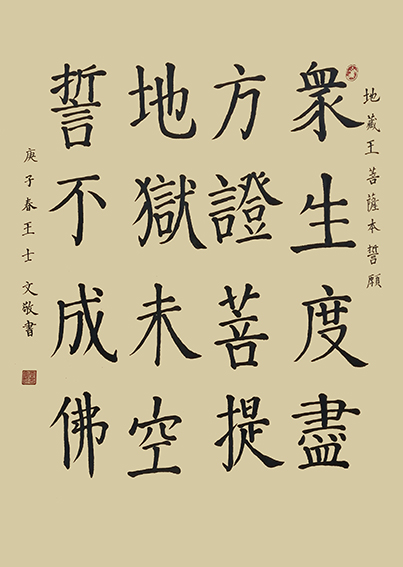 地藏王菩薩本誓願
衆生度盡
方證菩提
地獄未空
誓不成佛
庚子春王士文敬書